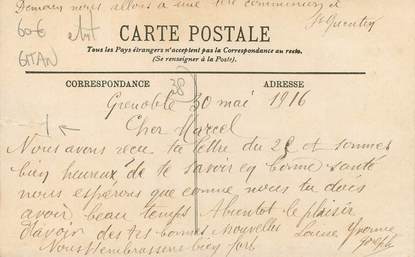 Demain nous allons à une 1ère communion à
St Quentin
60€
GITAN
CARTE POSTALE
Tous les Pays étrangers n'acceptent pas la Correspondance au recto.
(Se renseigner à la Poste).
CORRESPONDANCE
ADRESSE
Grenoble 30 mai 1916
Cher Marcel
Nous avons reçu ta lettre du 28 et sommes
bien heureux de te savoir en bonne santé
nous espérons que comme nous tu dois
avoir beau temps Abientot le plaisir
d'avoir des tes bonnes nouvelles Yvonne
Nous t'embrassons bien fort Joseph